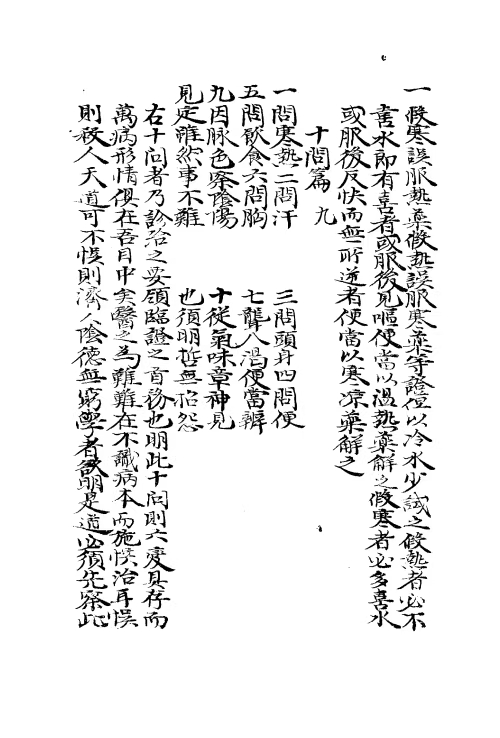 一假寒誤服熱藥假熱誤服寒藥等證但以冷水少試之假熱者必不
喜水即有喜者或服後見嘔便當以溫熱藥解之假寒者必多喜水
或服後反快而無所逆者便當以寒凉藥解之
十問篇 九
一問寒熱二問汗 三問頭身四問便
五問飲食六問胸 七聾八渴便當辨
九因脉色察陰陽 十從氣味章神見
見定雖然事不難 也須明哲無招怨
右十问者乃診治之要領臨證之首務也明此十问則六變具存而
萬病形情俱在吾目中矣醫之為難難在不識病本而施悮治耳悮
則殺人天道可不悮則濟人陰德無窮學者欲明是道必須先察此